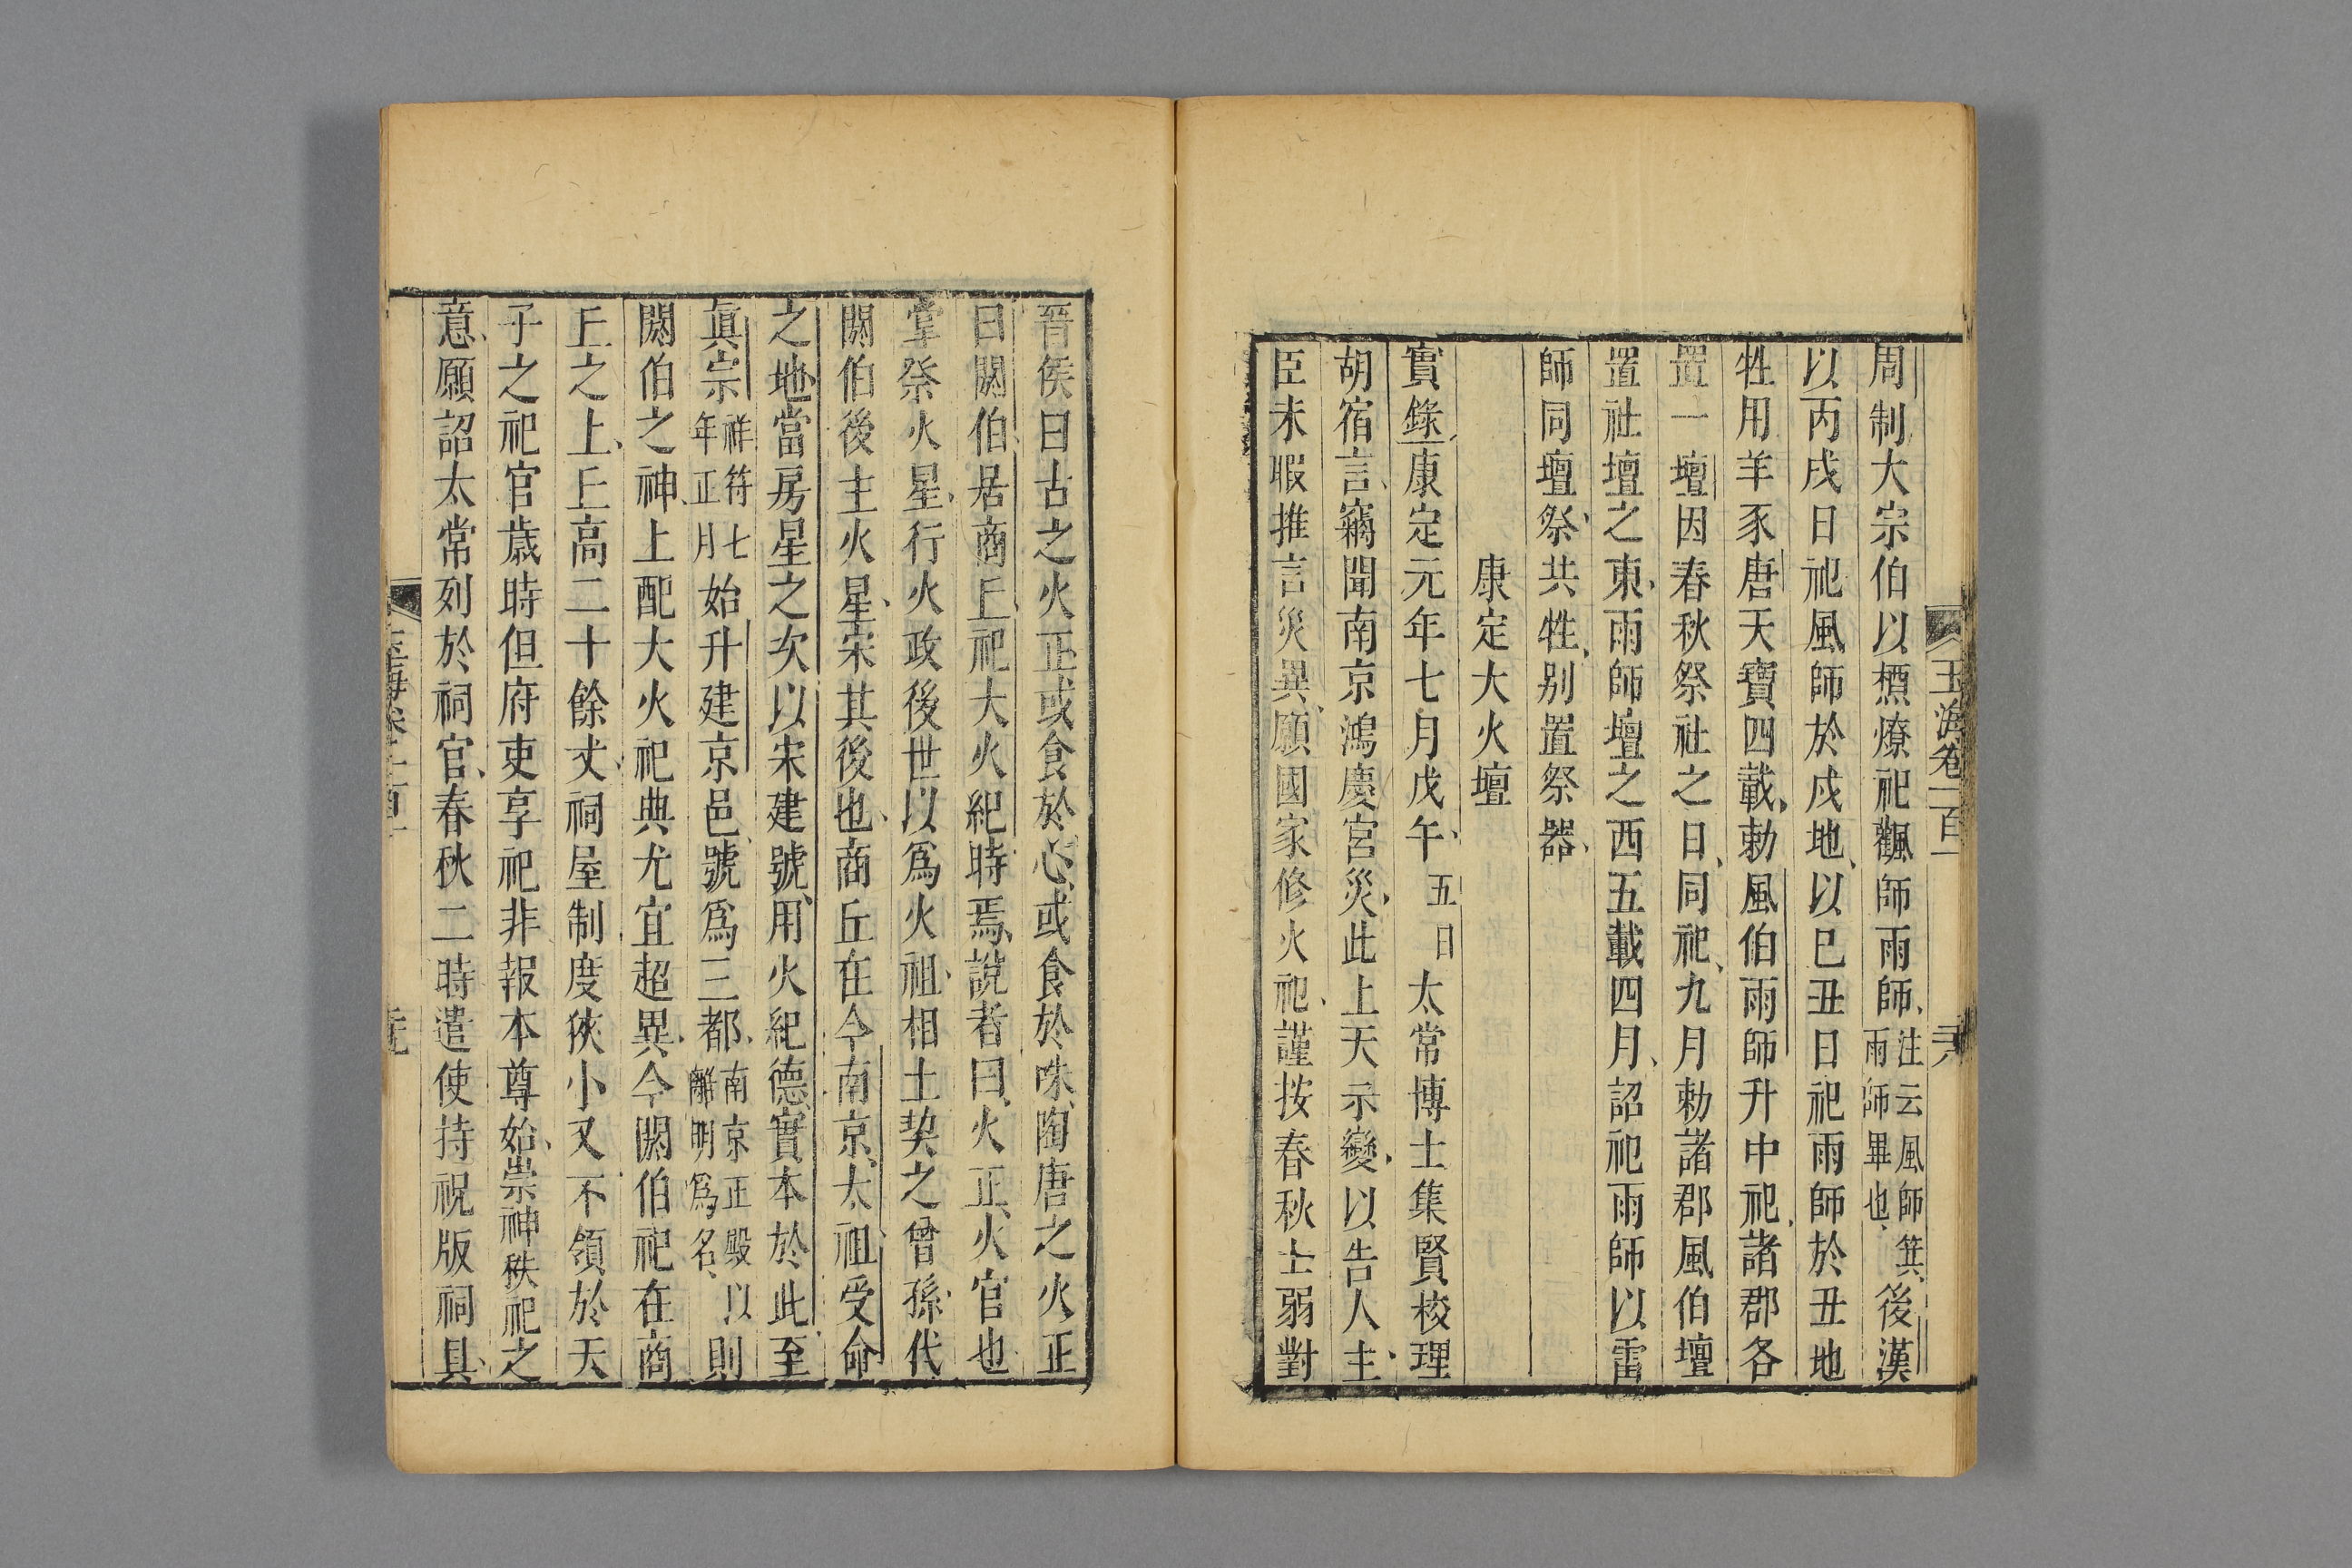 玉海卷一百一
周制大宗伯以槱燎祀飌師雨師注云風師箕雨師畢也後漢
以丙戌日祀風師於戌地以巳丑日祀雨師於丑地
牲用羊豕唐天寶四載勅風伯雨師升中祀諸郡各
置一壇因春秋祭社之日同祀九月勅諸郡風伯壇
置社壇之東雨師壇之西五載四月詔祀雨師以雷
師同壇祭共牲別置祭器
康定大火壇
實錄康定元年七月戊午五日太常博士集賢校理
胡宿言竊聞南京鴻慶宮災此上天示變以告人主
臣未暇推言災異願國家修火祀謹按春秋士弱對
晉侯曰古之火正或食於心或食於咮陶唐之火正
曰閼伯居商丘祀大火紀時焉說者曰火正火官也
掌祭火星行火政後世以爲火祖相土契之曾孫代
閼伯後主火星宋其後也商丘在今南京太祖受命
之地當房星之次以宋建號用火紀德實本於此至
眞宗祥符七年正月始升建京邑號爲三都南京正殿以歸明爲名則
閼伯之神上配大火祀典尤宜超異今閼伯祀在商
丘之上丘高二十餘丈祠屋制度狹小又不領於天
子之祀官歲時但府吏享祀非報本尊始崇神秩祀之
意願詔太常列於祠官春秋二時遣使持祝版祠具